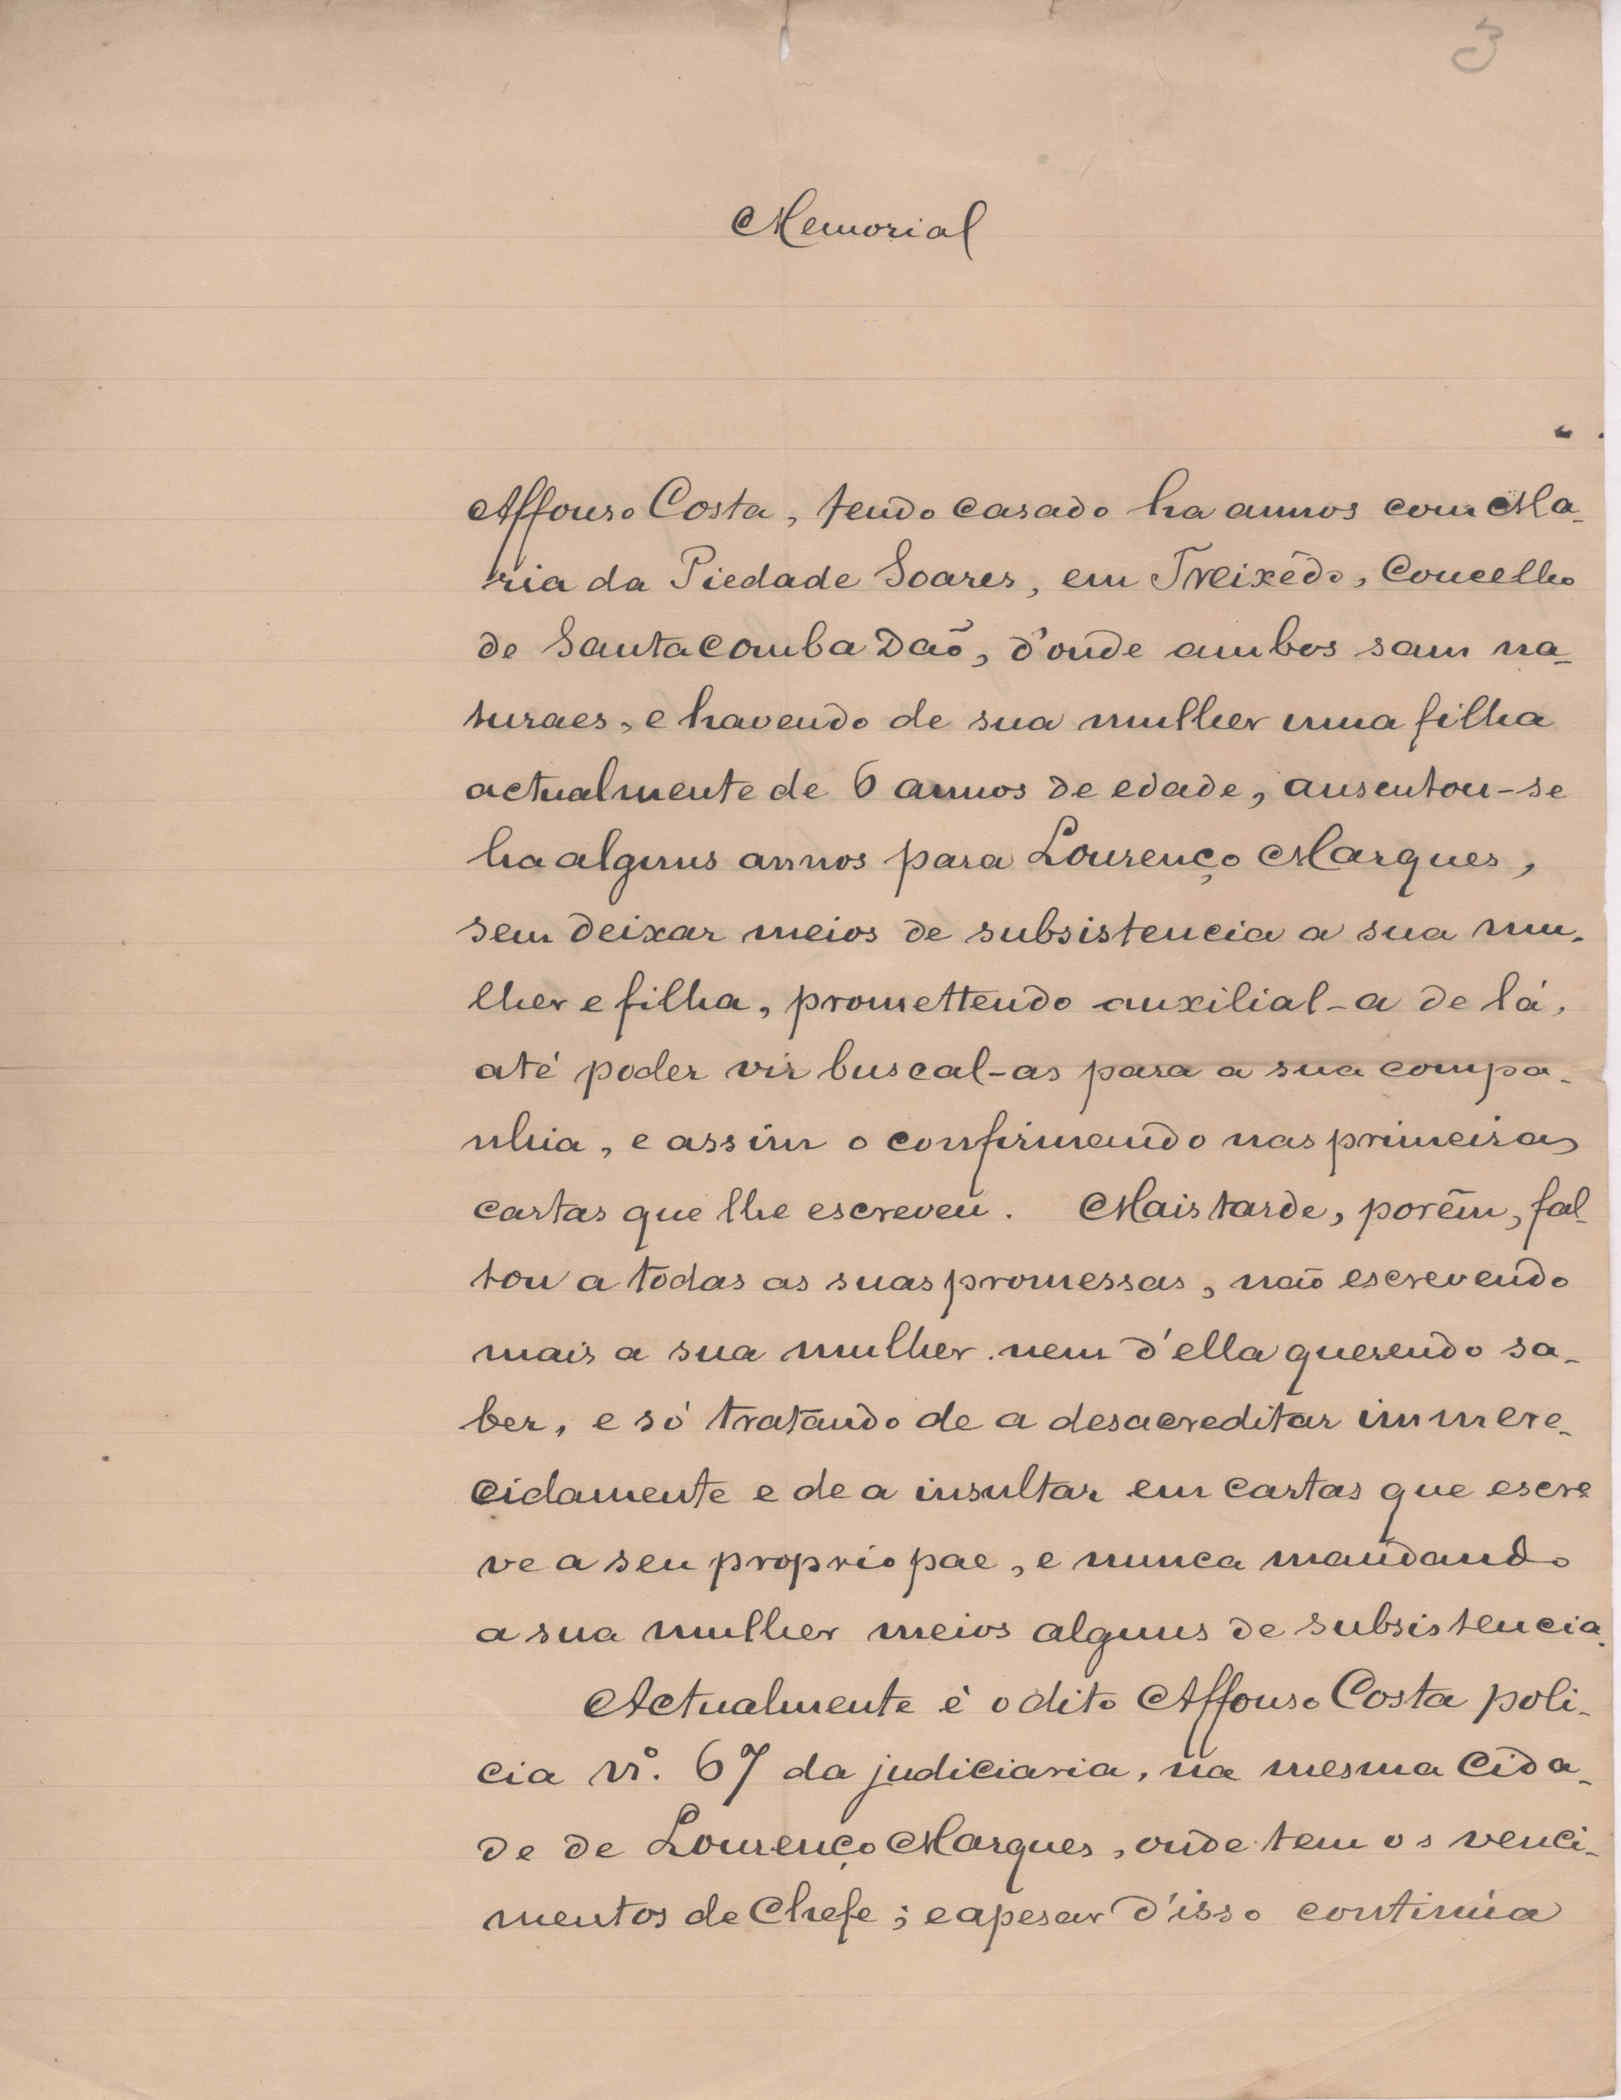 3
Memorial
Affonso Costa, tendo casado ha annos com Ma-
ria da Piedade Soares, em Treixêdo, Concelho
de Santa Comba Dão, d'onde ambos sam na-
turaes, e havendo de sua mulher uma filha
actualmente de 6 annos de edade, ausentou-se
ha alguns annos para Lourenço Marques,
sem deixar meios de subsistencia a sua mu-
lher e filha, promettendo auxilial-a de lá,
até poder vir buscal-as para a sua compa-
nhia, e assim o confirmando nas primeiras
cartas que lhe escreveu. Mais tarde, porêm, fal-
tou a todas as suas promessas, não escrevendo
mais a sua mulher nem d'ella querendo sa-
ber, e só tratando de a desacreditar immere-
cidamente e de a insultar em cartas que escre
ve a seu proprio pae, e nunca mandando
a sua mulher meios alguns de subsistencia.
Actualmente é o dito Affonso Costa poli-
cia nº. 67 da judiciaria, na mesma Cida-
de de Lourenço Marques, onde tem os venci-
mentos de Chefe; e apesar d'isso continúa